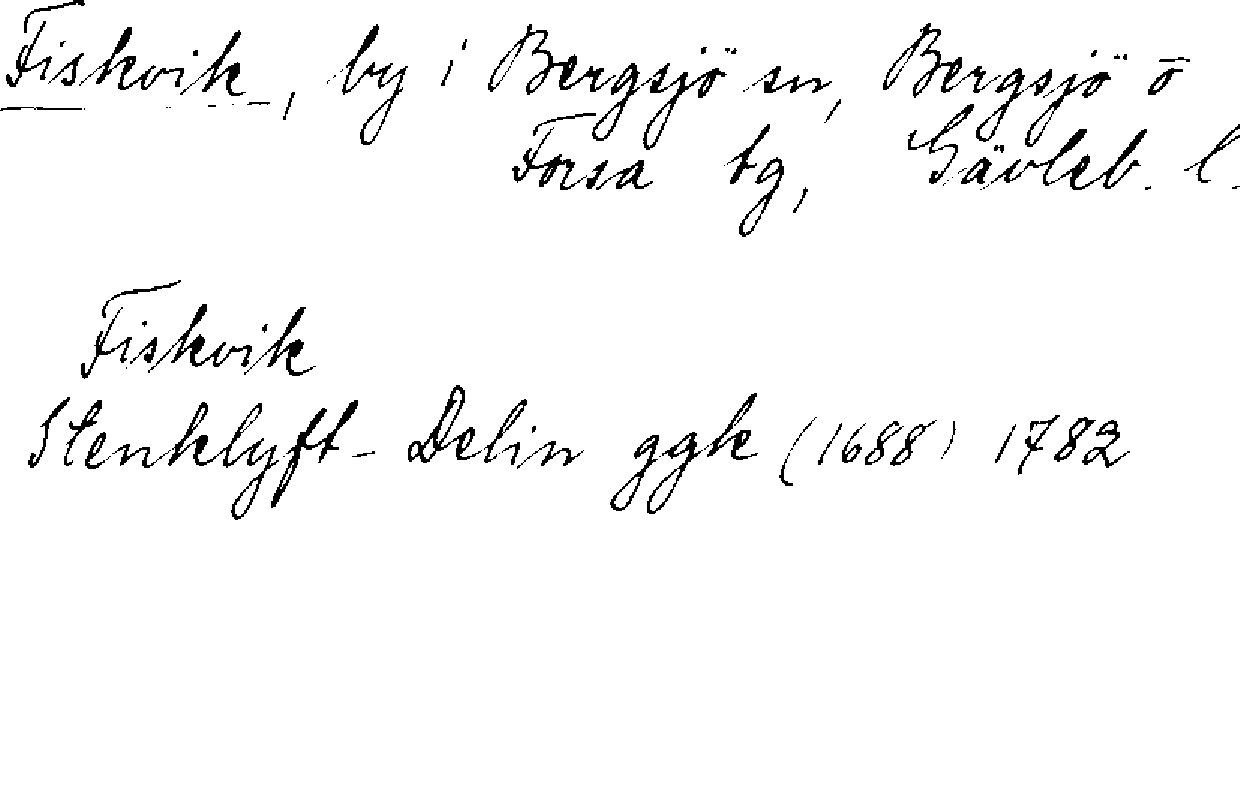 Fiskvik, by i Bergsjö sn, Bergsjö o
Forsa tg, Gävleb. l.
Fiskvik
Stenklyft- Delin ggk (1688) 1782